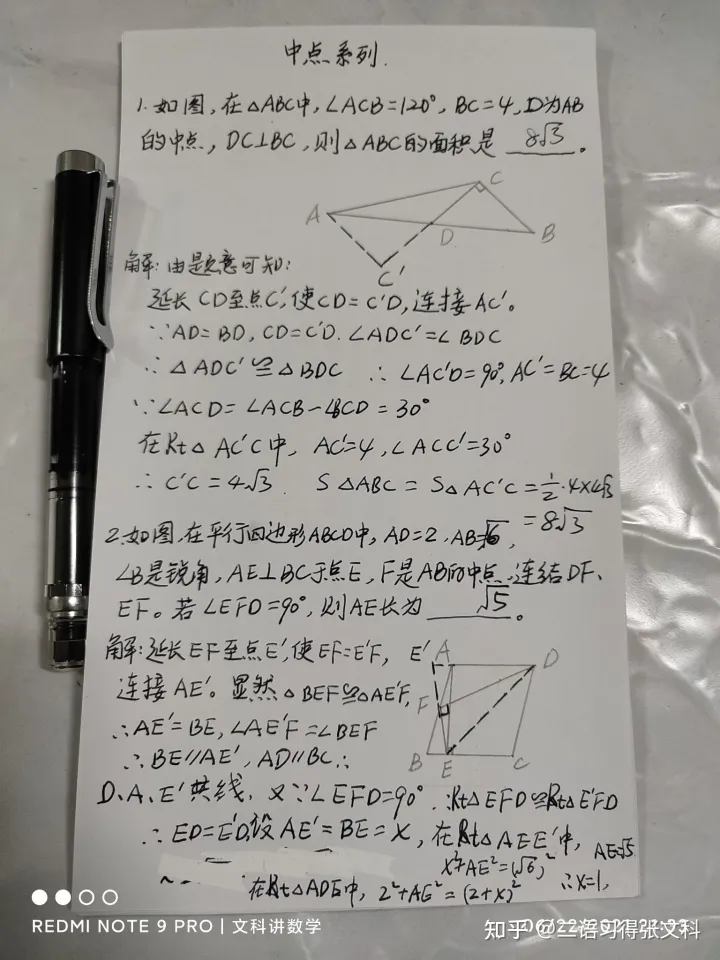 中点系列.
1.如图,在△ABC中,∠ACB=120°,BC=4,D为AB
的中点,DC⊥BC,则△ABC的面积是 8√3 。
A
C
D
B
C′
解:由题意可知:
延长CD至点C′,使CD=C′D,连接AC′。
∵AD=BD,CD=C′D.∠ADC′=∠BDC
∴△ADC′≌△BDC ∴∠AC′D=90°,AC′=BC=4
∵∠ACD=∠ACB-∠BCD=30°
在Rt△AC′C中,AC′=4,∠ACC′=30°
∴C′C=4√3. S△ABC=S△AC′C=½·4×4√3
=8√3
2.如图,在平行四边形ABCD中,AD=2,AB=√6,
∠B是锐角,AE⊥BC于点E,F是AB的中点,连结DF、
EF。若∠EFD=90°,则AE长为 √5 。
解:延长EF至点E′,使EF=E′F,
连接AE′。显然△BEF≌△AE′F,
∴AE′=BE,∠AE′F=∠BEF
∴BE∥AE′,AD∥BC,∴
E′
A
D
F
B
E
C
D、A、E′共线,又∵∠EFD=90°.∴Rt△EFD≌Rt△E′FD
∴ED=E′D,设AE′=BE=x,在Rt△AEE′中,
x²+AE²=(√6)², AE=√5
在Rt△ADE中,2²+AE²=(2+x)² ∴x=1,
REDMI NOTE 9 PRO | 文科讲数学
知乎 @三语习得张文科